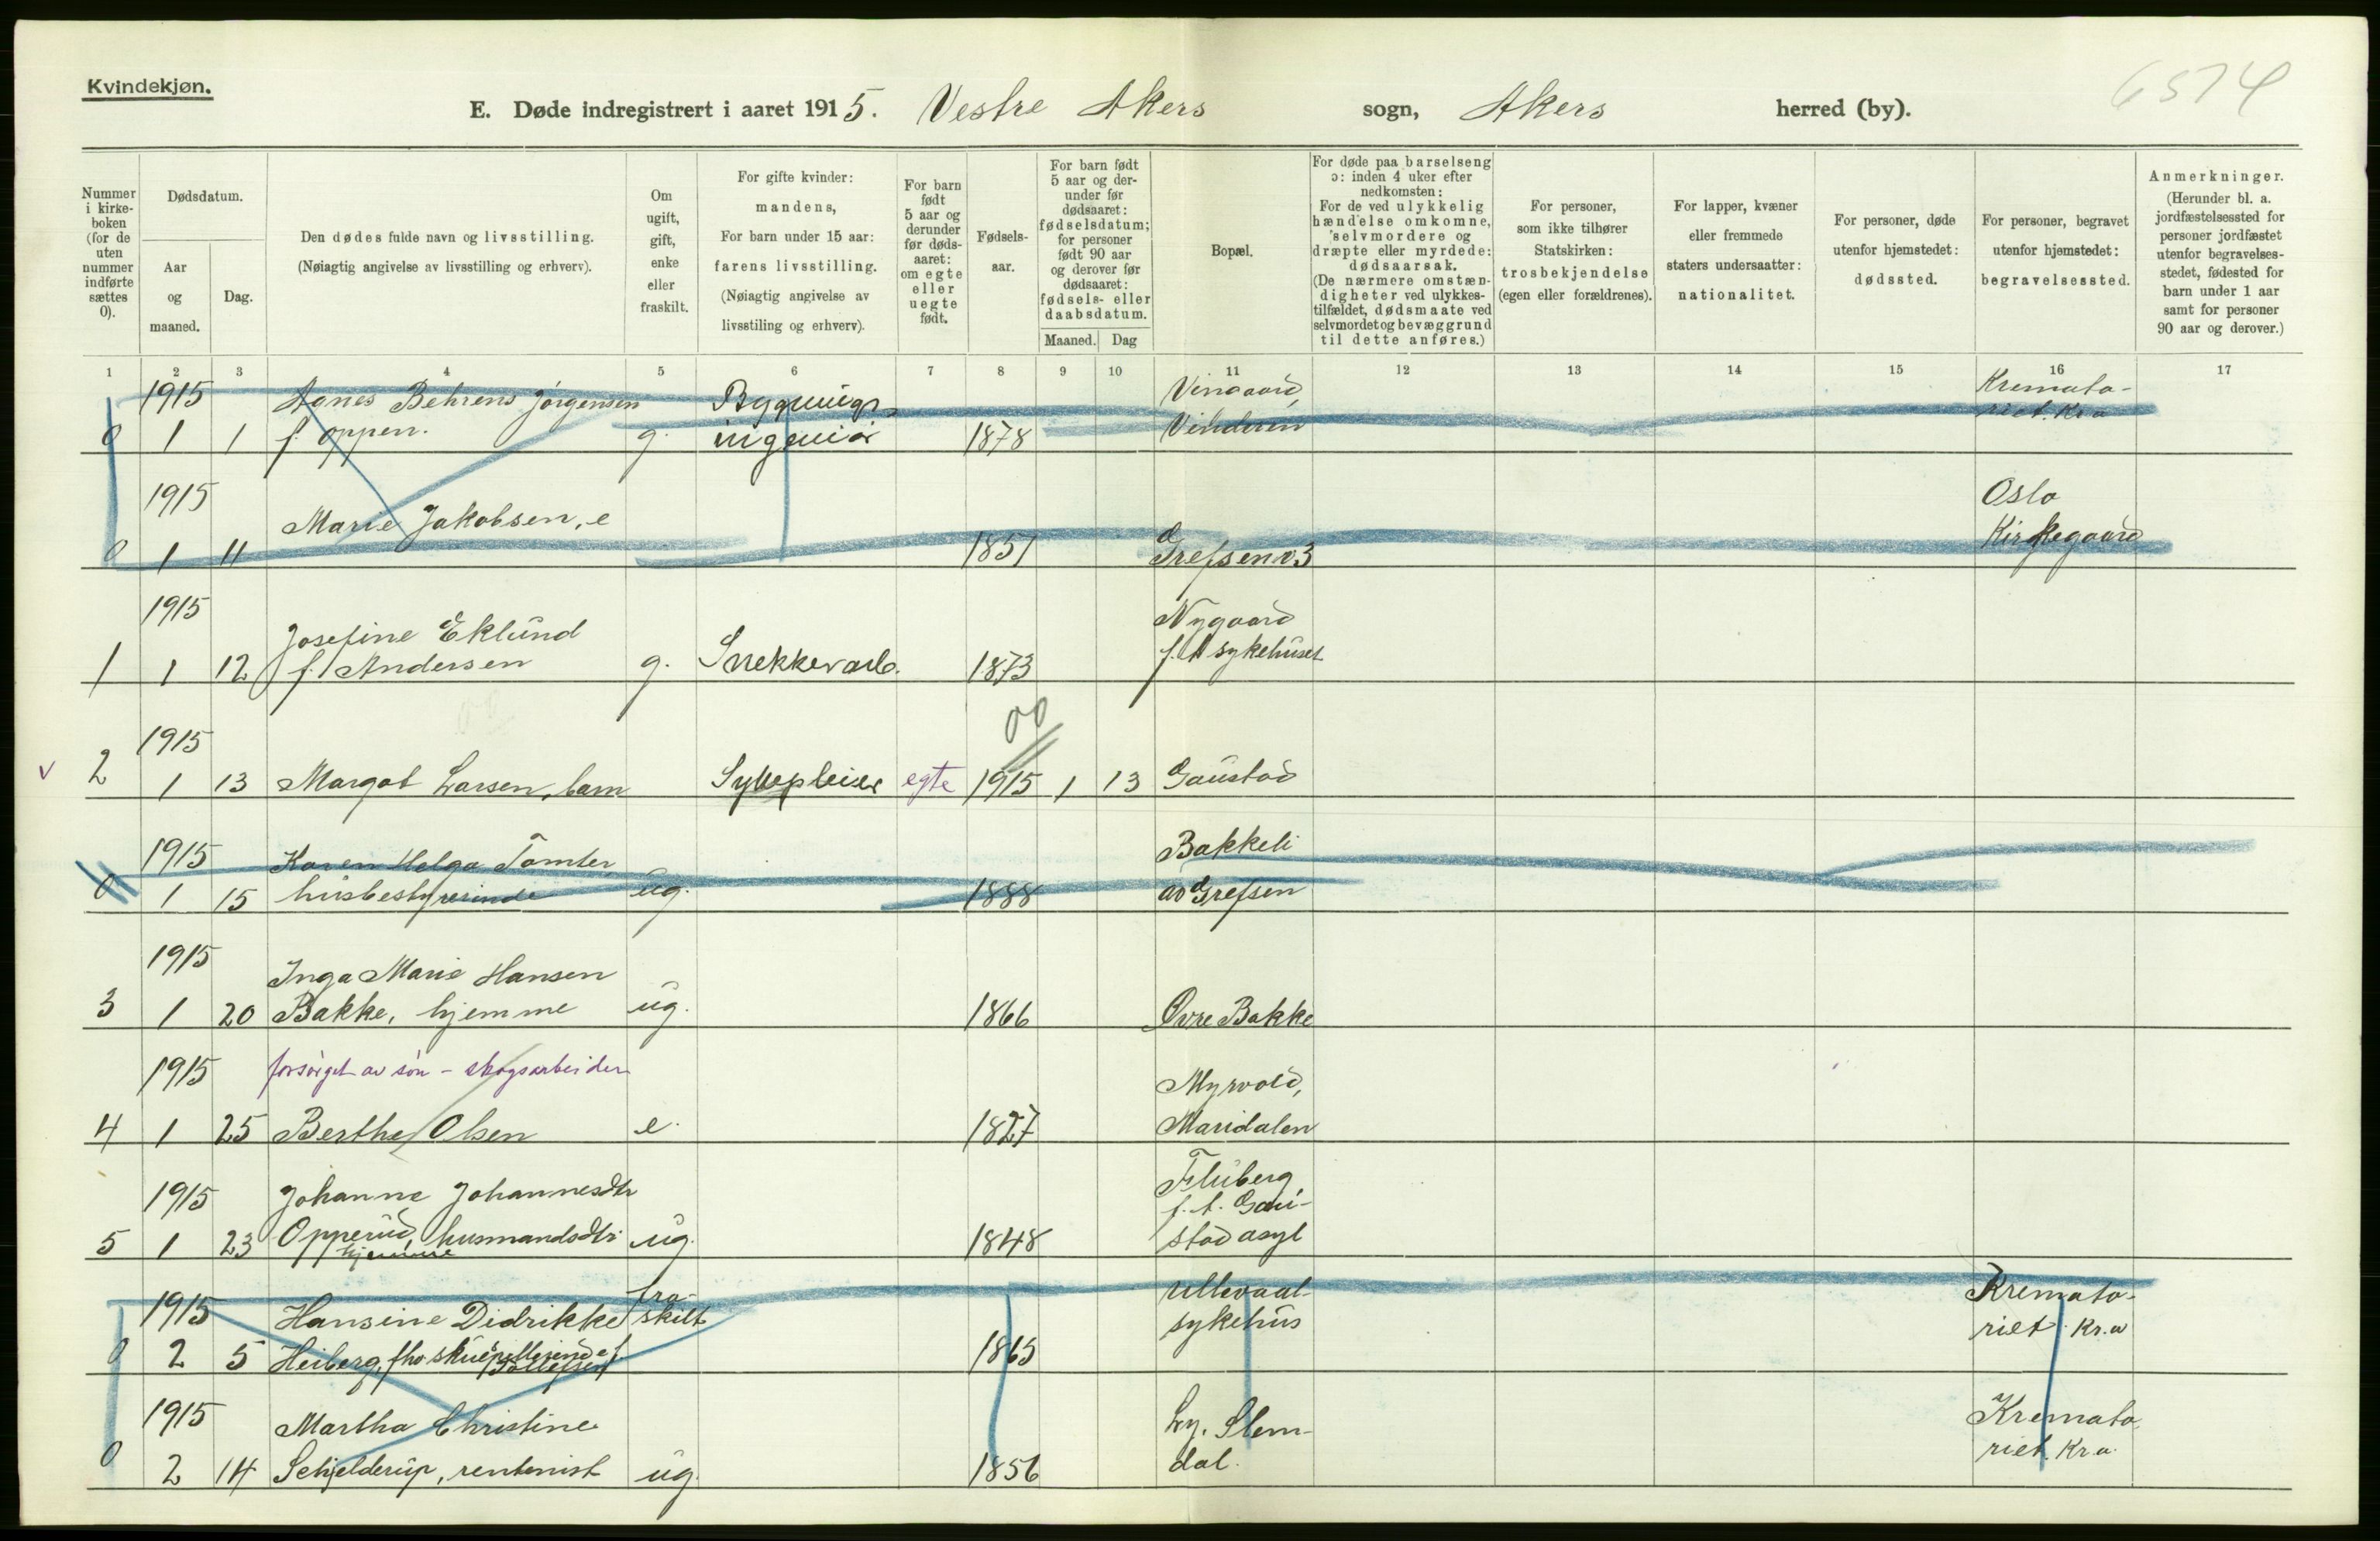 Kvindekjøn.
6574
E. Døde indregistrert i aaret 1915. Vestre Akers sogn, Akers herred (by).
Nummer i kirkeboken (for de uten nummer indførte sættes 0).
Dødsdatum.
Aar og maaned.
Dag.
Den dødes fulde navn og livsstilling.
(Nøiagtig angivelse av livsstilling og erhverv).
Om ugift, gift, enke eller fraskilt.
For gifte kvinder: mandens,
For barn under 15 aar: farens livsstilling.
(Nøiagtig angivelse av livsstiling og erhverv).
For barn født 5 aar og derunder før dødsaaret: om egte eller uegte født.
Fødselsaar.
For barn født 5 aar og derunder før dødsaaret: fødselsdatum; for personer født 90 aar og derover før dødsaaret: fødsels- eller daabsdatum.
Maaned. Dag
Bopæl.
For døde paa barselseng ɔ: inden 4 uker efter nedkomsten:
For de ved ulykkelig hændelse omkomne, selvmordere og dræpte eller myrdede: dødsaarsak.
(De nærmere omstændigheter ved ulykkestilfældet, dødsmaate ved selvmordet og bevæggrund til dette anføres.)
For personer, som ikke tilhører Statskirken: trosbekjendelse (egen eller forældrenes).
For lapper, kvæner eller fremmede staters undersaatter: nationalitet.
For personer, døde utenfor hjemstedet: dødssted.
For personer, begravet utenfor hjemstedet: begravelsessted.
Anmerkninger.
(Herunder bl. a. jordfæstelsessted for personer jordfæstet utenfor begravelsesstedet, fødested for barn under 1 aar samt for personer 90 aar og derover.)
1 2 3 4 5 6 7 8 9 10 11 12 13 14 15 16 17
1915 Agnes Behrens Jörgensen Bygnings Vingaard, Kremato-
0 1 1 f. Oppen. g. ingeniör 1878 Vinderen riet. Kr.a
1915 Oslo
Marie Jakobsen, e Kirkegaard
0 1 11 1851 Grefsenv.3
1915 Nygaard
Josefine Eklund f.t sykehuset
1 1 12 f. Andersen g. Snekkerarb. 1873
1915 00
v 2 1 13 Margot Larsen, barn Sykepleier egte 1915 1 13 Gaustad
1915 Karen Helga Tömter, Bakkeli
0 1 15 husbestyrerinde ug. 1888 av Grefsen
1915 Inga Marie Hansen
3 1 20 Bakke, hjemme ug. 1866 Øvre Bakke
1915 forsörget av sön - skogsarbeider Myrvold,
4 1 25 Berthe Olsen e. 1827 Maridalen
1915 Johanne Johannesdtr Fluberg
f.t. Gau-
5 1 23 Opperud, husmandsdtr ug. 1848 stad asyl
hjemme
1915 Hansine Didrikke fra-skilt Ullevaal- Kremato-
sykehus riet. Kr.a
0 2 5 Heiberg, fhv skuespillerinde f. Tollefsen 1865
1915 Martha Christine Ly. Slem- Kremato
0 2 14 Schjelderup, rentenist ug. 1856 dal. riet. Kr.a.